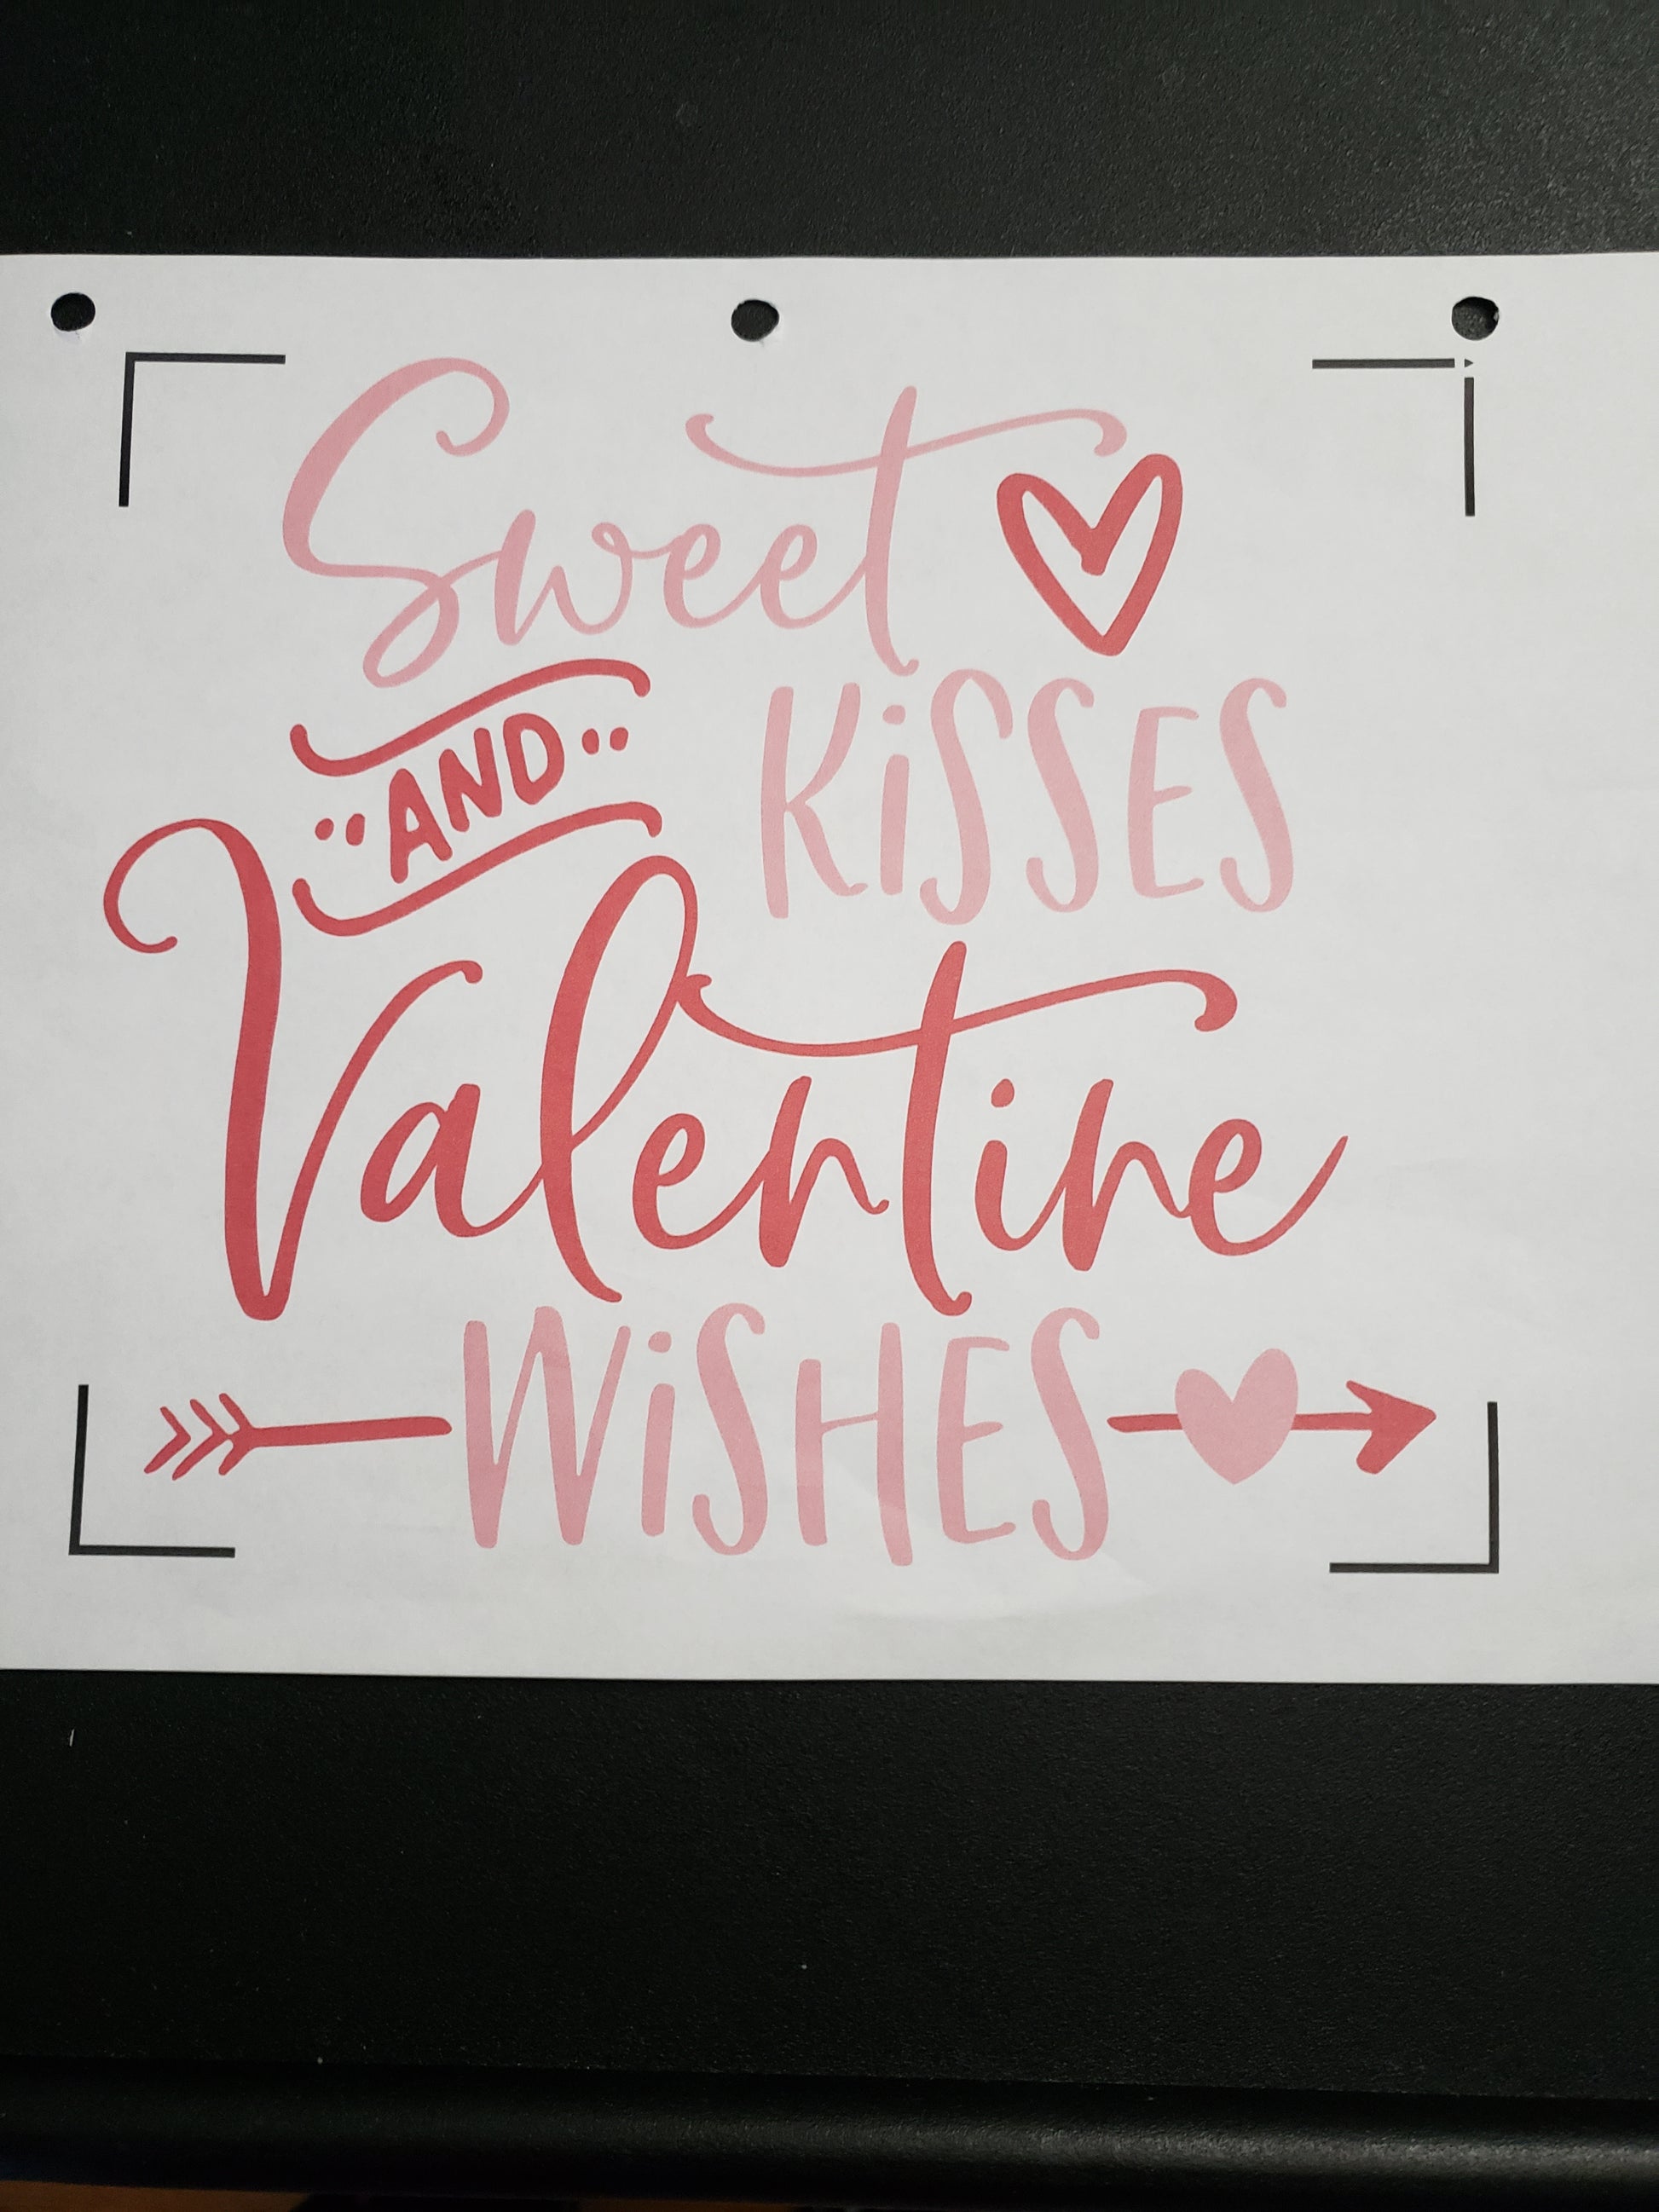 Sweet
KiSSES
AND
Valentine
WiSHES